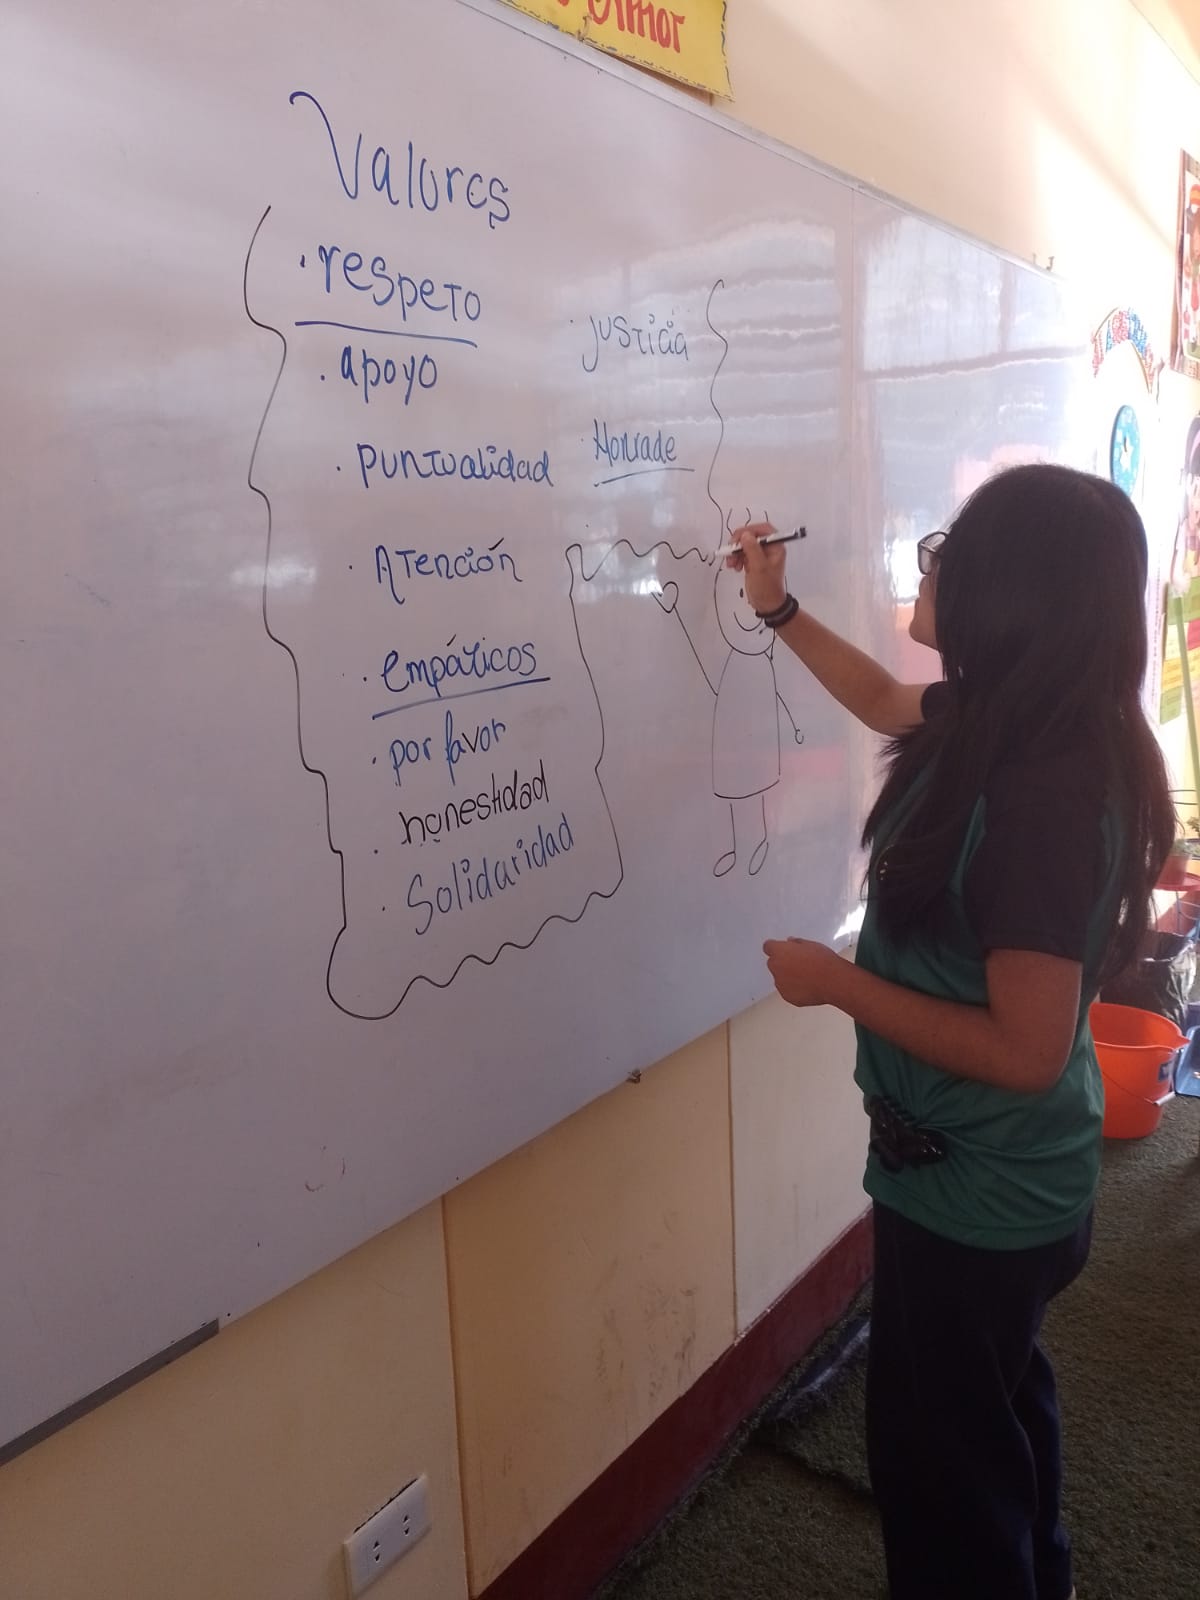 Amor
Valores
· respeto
· apoyo
· puntualidad
· Atención
· empáticos
· por favor
· honestidad
· Solidaridad
· justicia
· Honrade